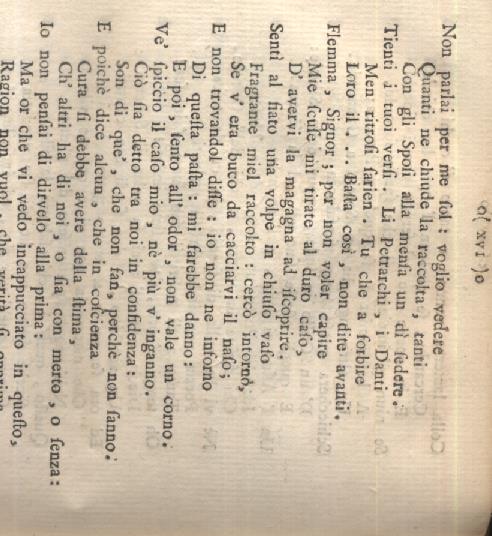 o( XVI )o
Non parlai per me ſol: voglio vedere
Quanti ne chiude la raccolta, tanti
Con gli Spoſi alla menſa un dì ſedere.
Tienti i tuoi verſi. Li Petrarchi, i Danti
Men ritroſi ſarien. Tu che a forbire
Loro il... Baſta così, non dite avanti.
Flemma, Signor; per non voler capire
Mie ſcuſe mi tirate al duro caſo,
D' avervi la magagna ad iſcoprire.
Sentì al fiato una volpe in chiuſo vaſo
Fragrante miel raccolto: cercò intorno,
Se v' era buco da cacciarvi il naſo;
E non trovandol diſſe: io non ne inforno
Di queſta paſta: mi farebbe danno:
E poi, ſento all' odor, non vale un corno.
Ve' ſpiccio il caſo mio, nè più v' inganno.
Ciò ſia detto tra noi in confidenza:
Son di que', che non fan, perchè non ſanno.
E poichè dice alcun, che in coſcienza
Cura ſi debbe avere della ſtima,
Ch' altri ha di noi, o ſia con merto, o ſenza:
Io non penſai di dirvelo alla prima:
Ma or che vi vedo incappucciato in queſto,
Ragion non vuol, che verità